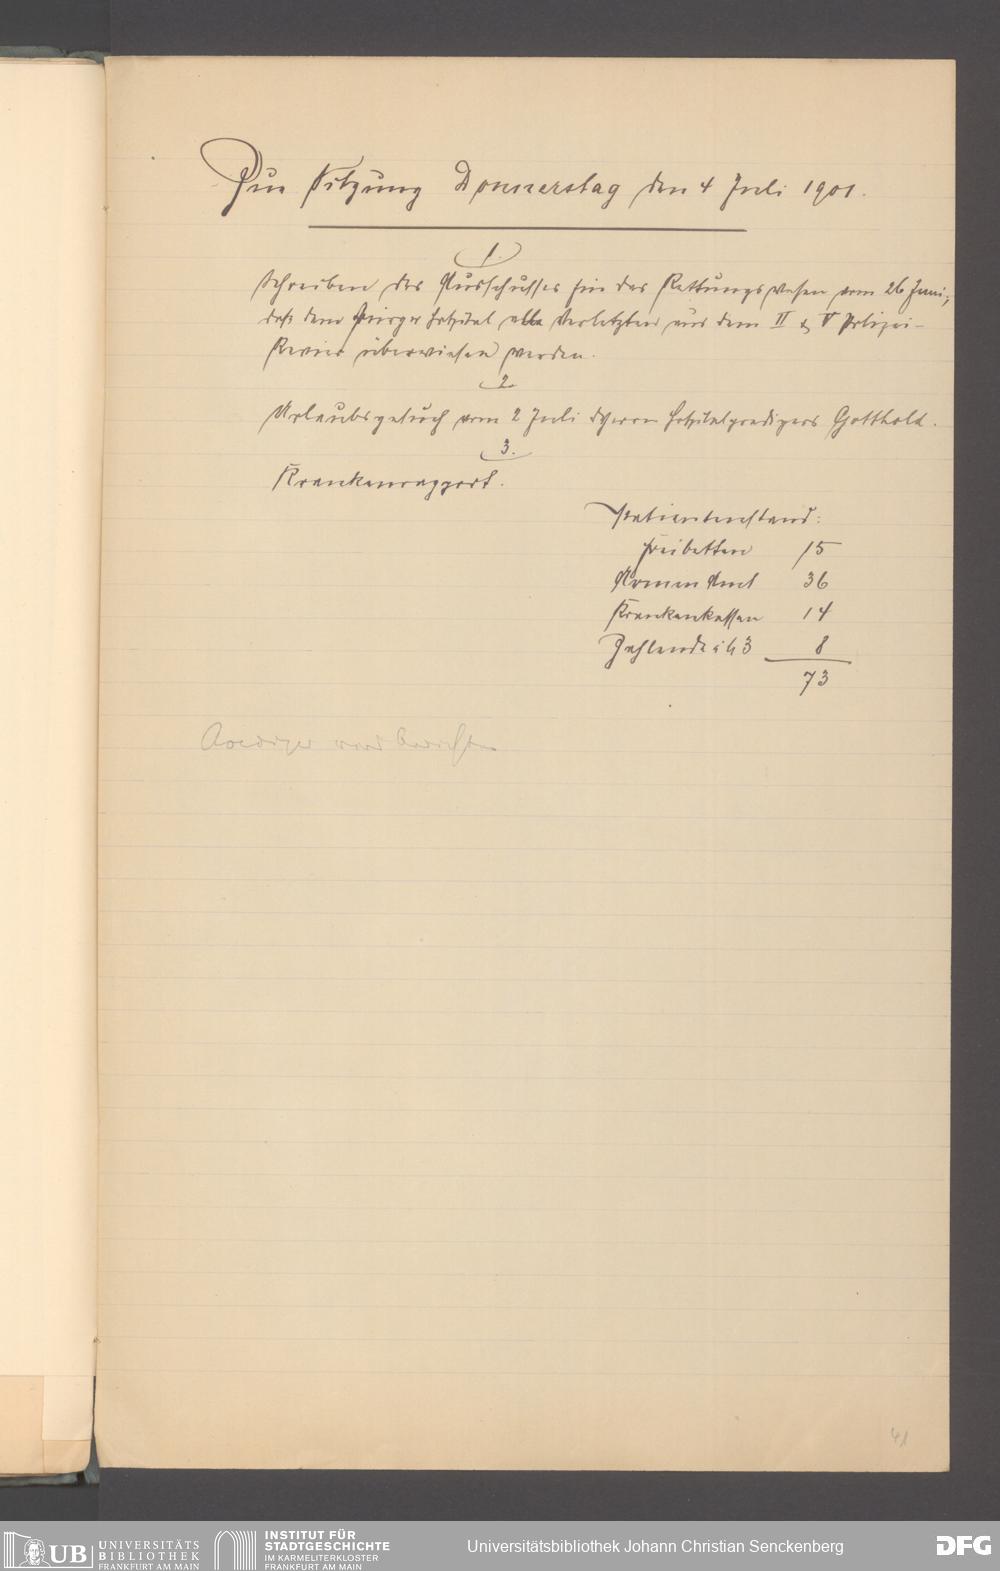 Zur Sitzung Donnerstag den 4 Juli 1901.
1.
Schreiben des Ausschusses für das Rettungswesen vom 26 Juni,
daß dem Bürger Hospital alle Verletzten aus dem II & V Polizei-
Revier überwiesen werden.
2.
Urlaubsgesuch vom 2 Juli d Herrn Hospitalpredigers Gotthold.
3.
Krankenrapport.
Patientenstand:
Freibetten 15
Armen Amt 36
Krankenkassen 14
Zahlende à M 3 8
73
wird berichten
41
UB UNIVERSITÄTS
BIBLIOTHEK
FRANKFURT AM MAIN
INSTITUT FÜR
STADTGESCHICHTE
IM KARMELITERKLOSTER
FRANKFURT AM MAIN
Universitätsbibliothek Johann Christian Senckenberg
DFG